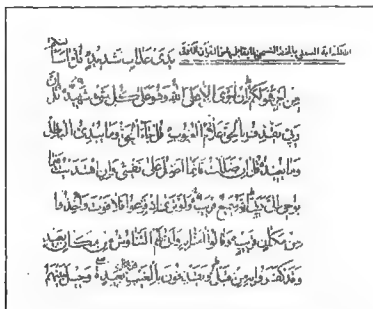 يدى عذاب شديد قل ما سألتكم
من اجر فهو لكم ان اجرى الا على الله وهو على كل شىء شهيد قل ان
ربى يقذف بالحق علام الغيوب قل جاء الحق وما يبدئ الباطل
وما يعيد قل ان ضللت فانما اضل على نفسى وان اهتديت فبما
يوحى الى ربى انه سميع قريب ولو ترى اذ فزعوا فلا فوت واخذوا
من مكان قريب وقالوا امنا به وانى لهم التناوش من مكان بعيد
وقد كفروا به من قبل ويقذفون بالغيب من مكان بعيد وحيل بينهم